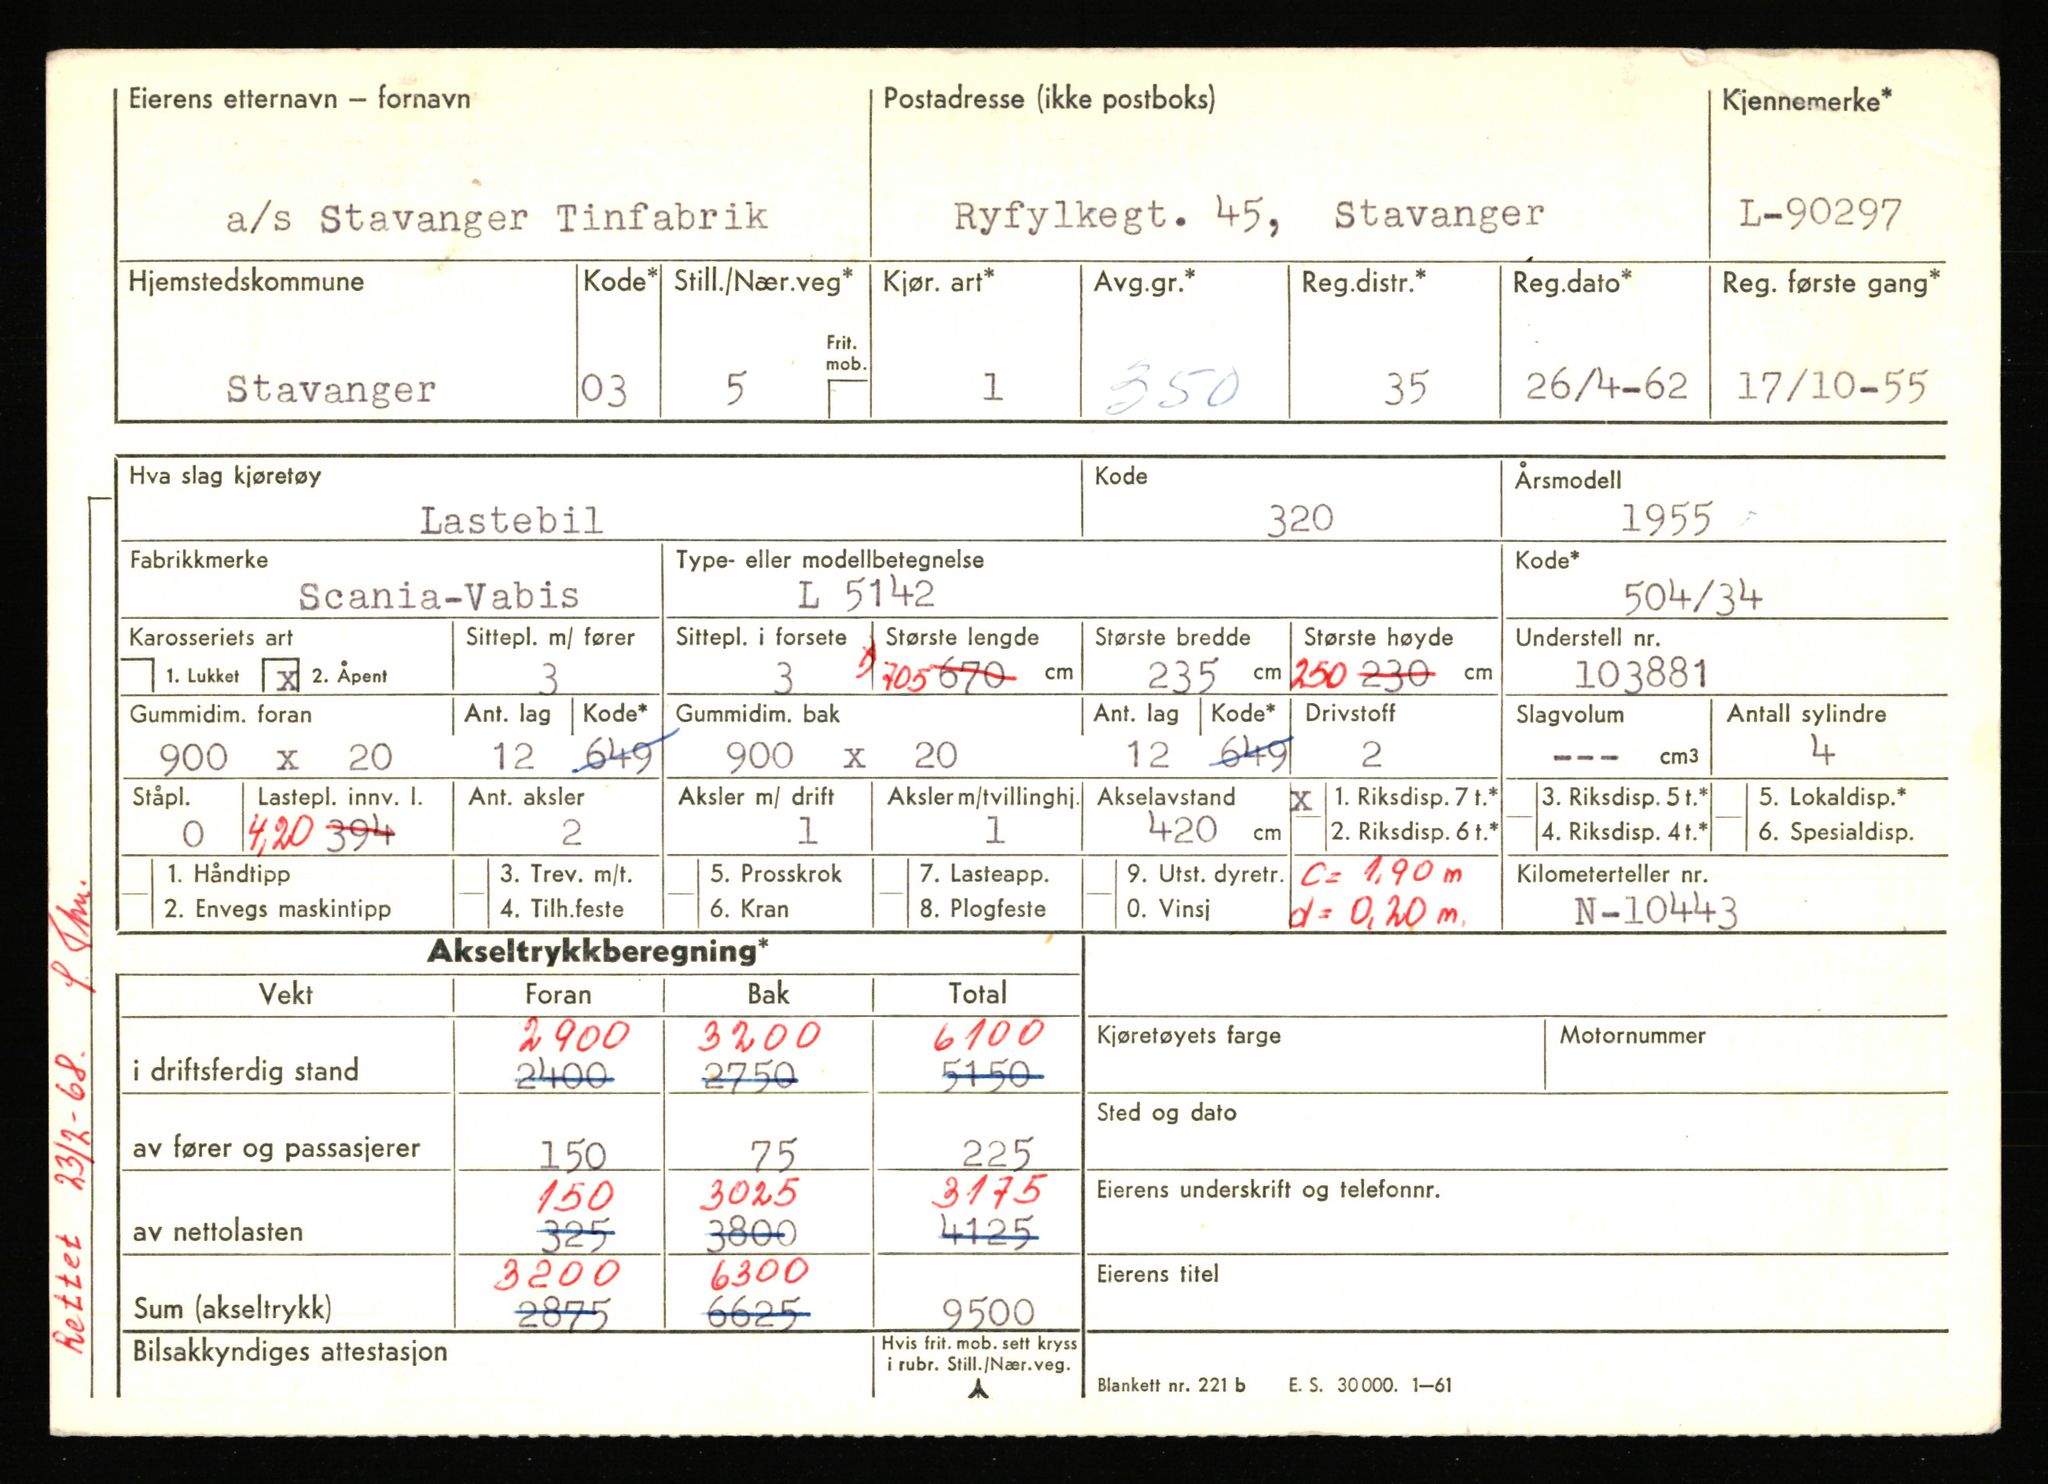 Eierens etternavn – fornavn Postadresse (ikke postboks) Kjennemerke*
a/s Stavanger Tinfabrik Ryfylkegt. 45, Stavanger L-90297
Hjemstedskommune Kode* Still./Nær.veg* Kjør. art* Avg.gr.* Reg.distr.* Reg.dato* Reg. første gang*
Frit.
mob.
Stavanger 03 5 1 350 35 26/4-62 17/10-55
Hva slag kjøretøy Kode Årsmodell
Lastebil 320 1955
Fabrikkmerke Type- eller modellbetegnelse Kode*
Scania-Vabis L 5142 504/34
Karosseriets art Sittepl. m/ fører Sittepl. i forsete Største lengde Største bredde Største høyde Understell nr.
1. Lukket x 2. Åpent 3 3 705 670 cm 235 cm 250 230 cm 103881
Gummidim. foran Ant. lag Kode* Gummidim. bak Ant. lag Kode* Drivstoff Slagvolum Antall sylindre
900 x 20 12 649 900 x 20 12 649 2 --- cm3 4
Ståpl. Lastepl. innv. l. Ant. aksler Aksler m/ drift Aksler m/tvillinghj. Akselavstand x 1. Riksdisp. 7 t.* 3. Riksdisp. 5 t.* 5. Lokaldisp.*
0 4,20 394 2 1 1 420 cm 2. Riksdisp. 6 t.* 4. Riksdisp. 4 t.* 6. Spesialdisp.
1. Håndtipp 3. Trev. m/t. 5. Prosskrok 7. Lasteapp. 9. Utst. dyretr. c = 1,90 m Kilometerteller nr.
2. Envegs maskintipp 4. Tilh.feste 6. Kran 8. Plogfeste 0. Vinsj d = 0,20 m. N-10443
Akseltrykkberegning*
Vekt Foran Bak Total
2900 3200 6100
i driftsferdig stand 2400 2750 5150
Kjøretøyets farge Motornummer
Sted og dato
av fører og passasjerer 150 75 225
150 3025 3175
Eierens underskrift og telefonnr.
av nettolasten 325 3800 4125
3200 6300
Eierens titel
Sum (akseltrykk) 2875 6625 9500
Bilsakkyndiges attestasjon Hvis frit. mob. sett kryss
i rubr. Still./Nær.veg.
Blankett nr. 221 b E. S. 30 000. 1–61
Rettet 23/2-68.